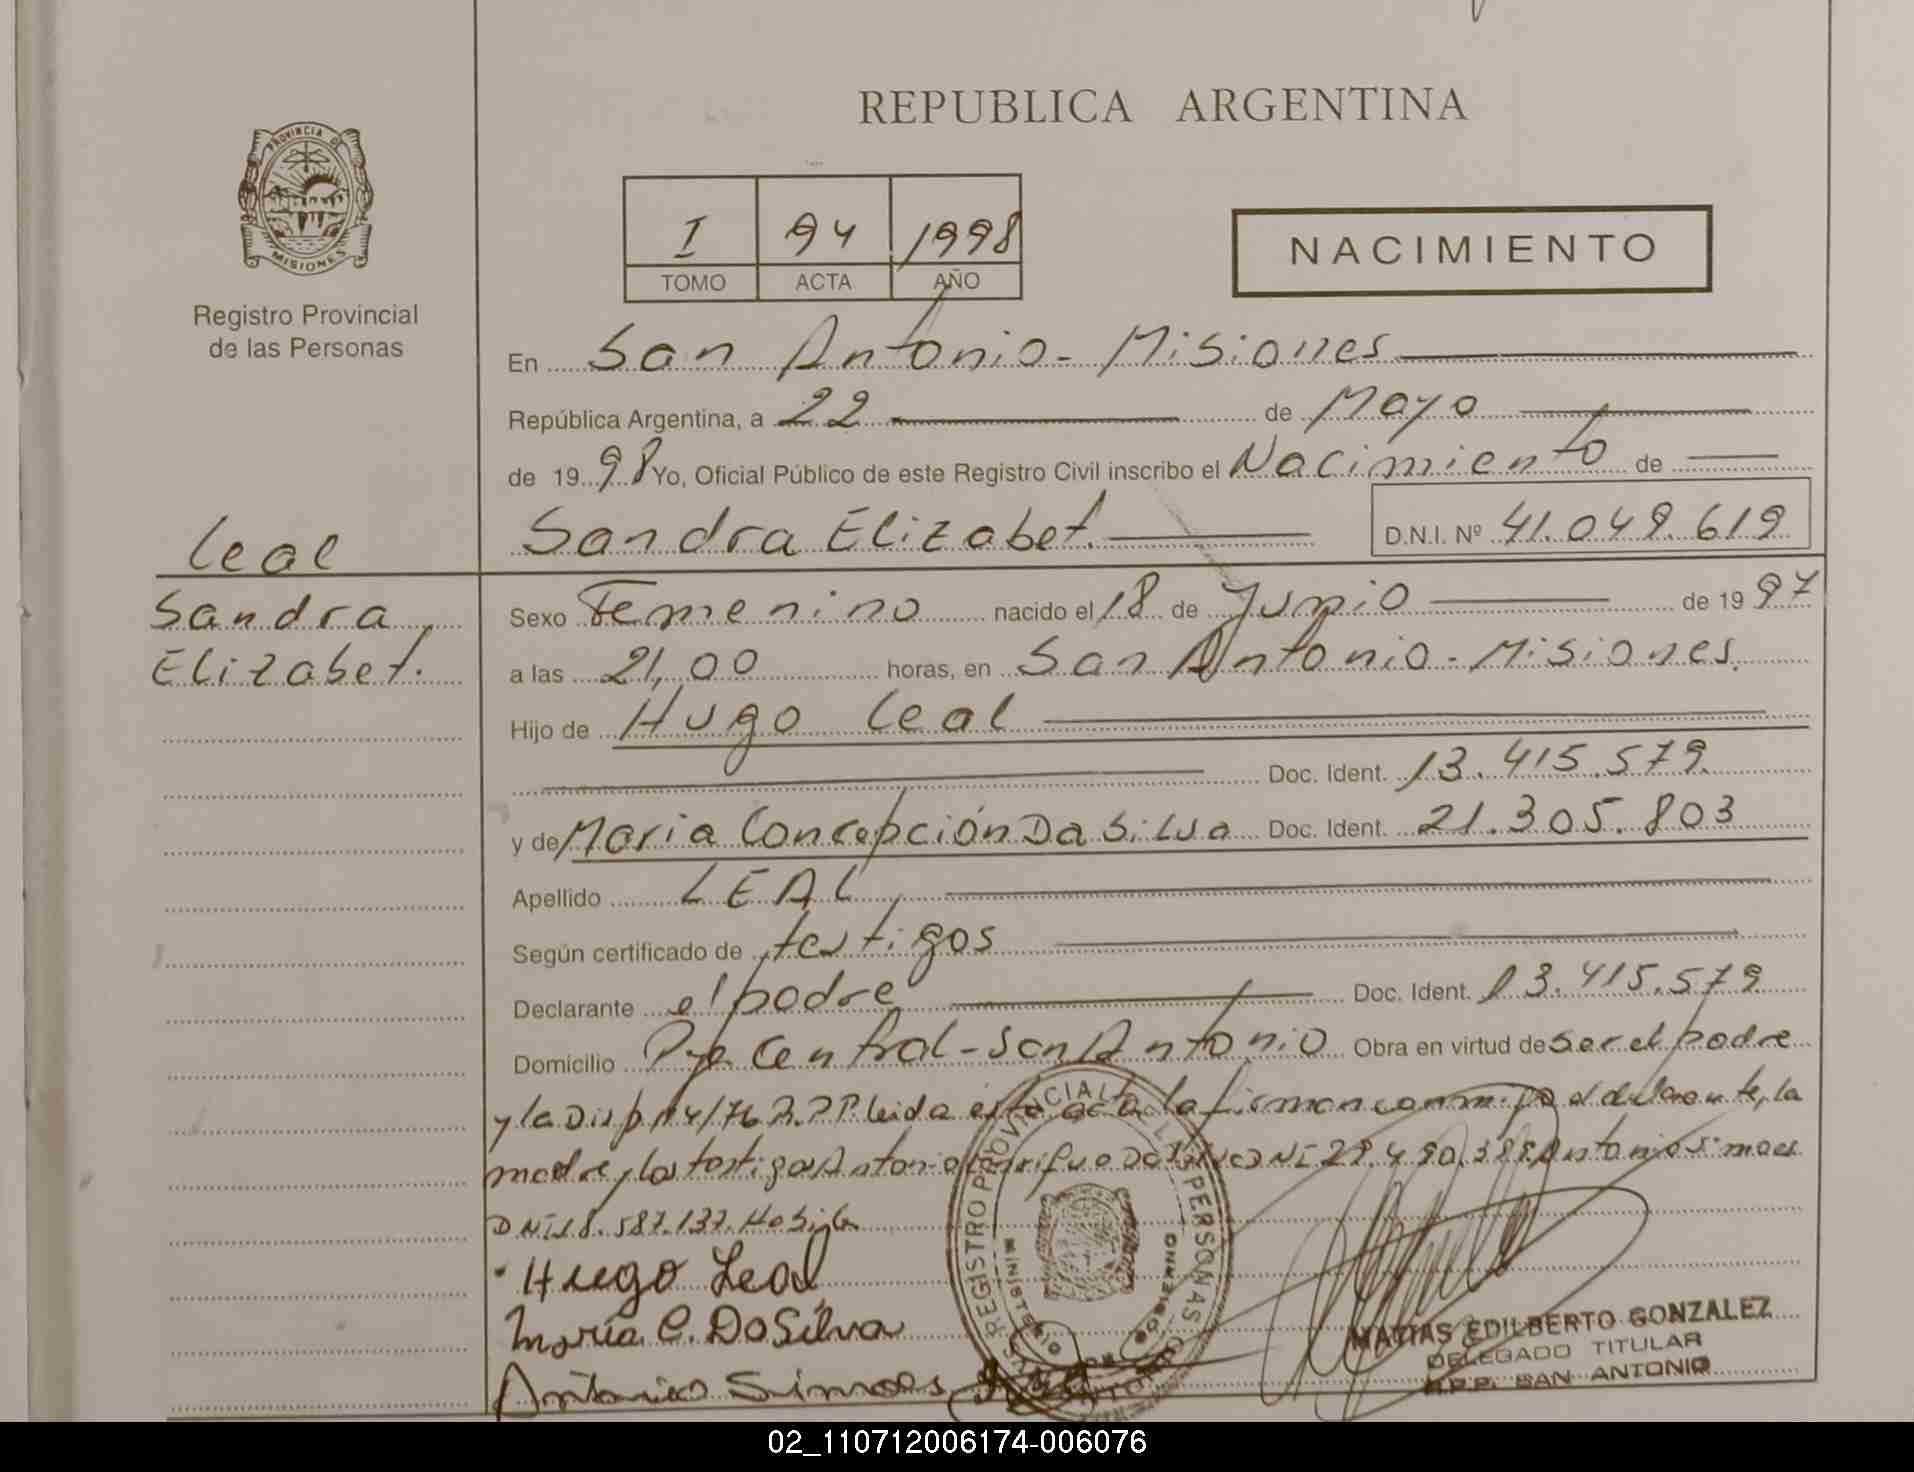 REPUBLICA ARGENTINA
PROVINCIA DE
MISIONES
Registro Provincial
de las Personas
I 94 1998
TOMO ACTA AÑO
NACIMIENTO
En San Antonio - Misiones
República Argentina, a 22 de Mayo
de 1998 Yo, Oficial Público de este Registro Civil inscribo el Nacimiento de
Leal
Sandra Elizabet. D.N.I. Nº 41.049.619
Sandra
Elizabet.
Sexo Femenino nacido el 18 de Junio de 1997
a las 21,00 horas, en San Antonio - Misiones.
Hijo de Hugo Leal
Doc. Ident. 13.415.579.
y de Maria Concepción Da Silva Doc. Ident. 21.305.803
Apellido LEAL
Según certificado de testigos
Declarante el padre Doc. Ident. 13.415.579
Domicilio Pje Central - San Antonio Obra en virtud de ser el padre
y la Disp 14/76 R.P.P. leida esta acta la firman conmigo el declarante, la
madre y los testigos Antonio Da Silva DNI Antonio Simoes
DNI 18.587.137.
Hugo Leal
María C. Da Silva
Antonio Simoes
REGISTRO PROVINCIAL DE LAS PERSONAS
MINISTERIO DE GOBIERNO
MATIAS EDILBERTO GONZALEZ
DELEGADO TITULAR
R.P.P. SAN ANTONIO
02_110712006174-006076